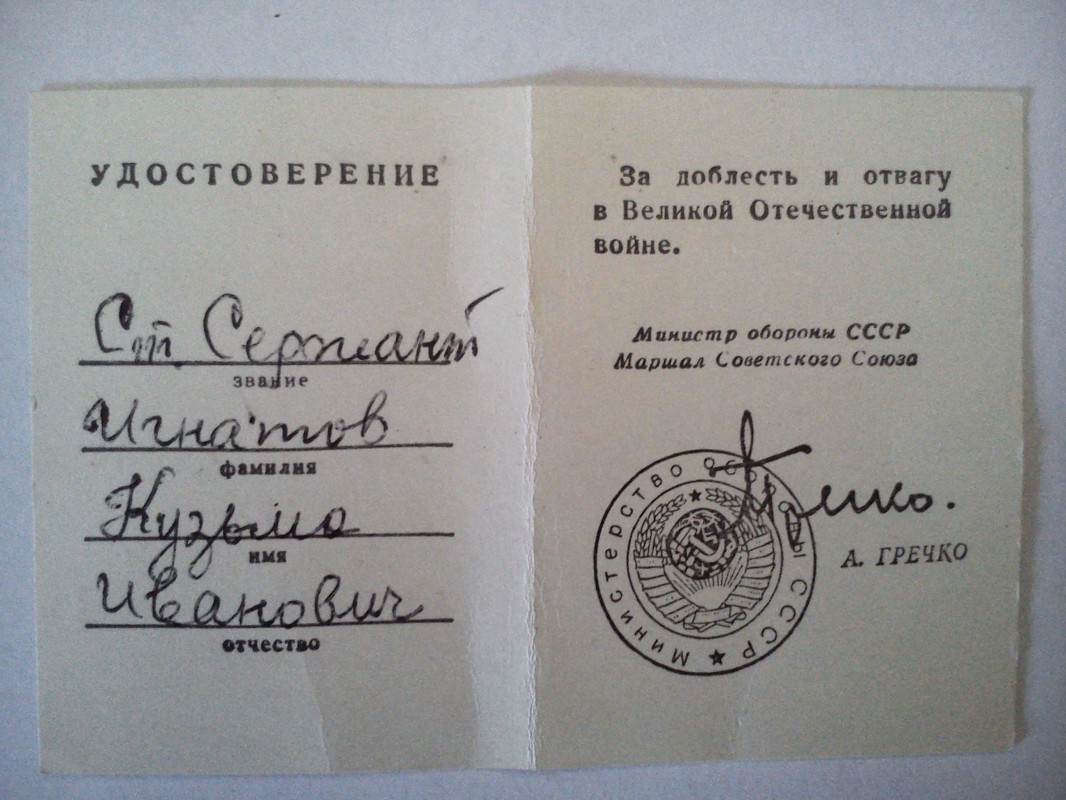 УДОСТОВЕРЕНИЕ
Ст. Сержант
звание
Игнатов
фамилия
Кузьма
имя
Иванович
отчество
За доблесть и отвагу
в Великой Отечественной
войне.
Министр обороны СССР
Маршал Советского Союза
Министерство Обороны СССР
Гречко.
А. ГРЕЧКО